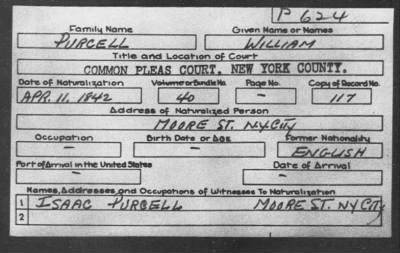 P 624
Family Name Given Name or Names
PURCELL WILLIAM
Title and Location of Court
COMMON PLEAS COURT, NEW YORK COUNTY.
Date of Naturalization Volume or Bundle No. Page No. Copy of Record No.
APR. 11, 1842 40 - 117
Address of Naturalized Person
MOORE ST. NYCITY
Occupation Birth Date or Age Former Nationality
- - ENGLISH
Port of Arrival in the United States Date of Arrival
- -
Names, Addresses and Occupations of Witnesses To Naturalization
1 ISAAC PURCELL MOORE ST. NY CITY
2